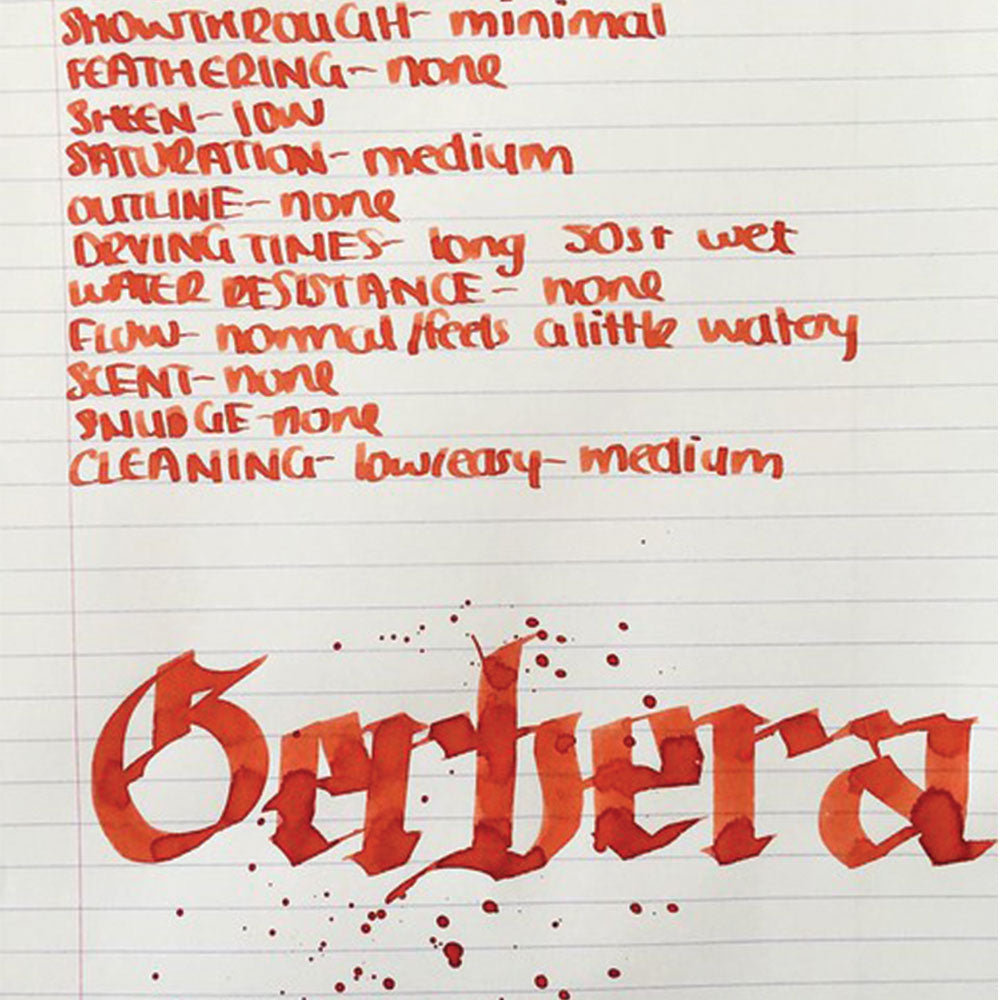 SHOWTHROUGH- minimal
FEATHERING- none
SHEEN- low
SATURATION- medium
OUTLINE- none
DRYING TIMES- long 50s+ wet
WATER RESISTANCE- none
FLOW- normal/feels a little watery
SCENT- none
SMUDGE- none
CLEANING- low/easy- medium
Gerbera